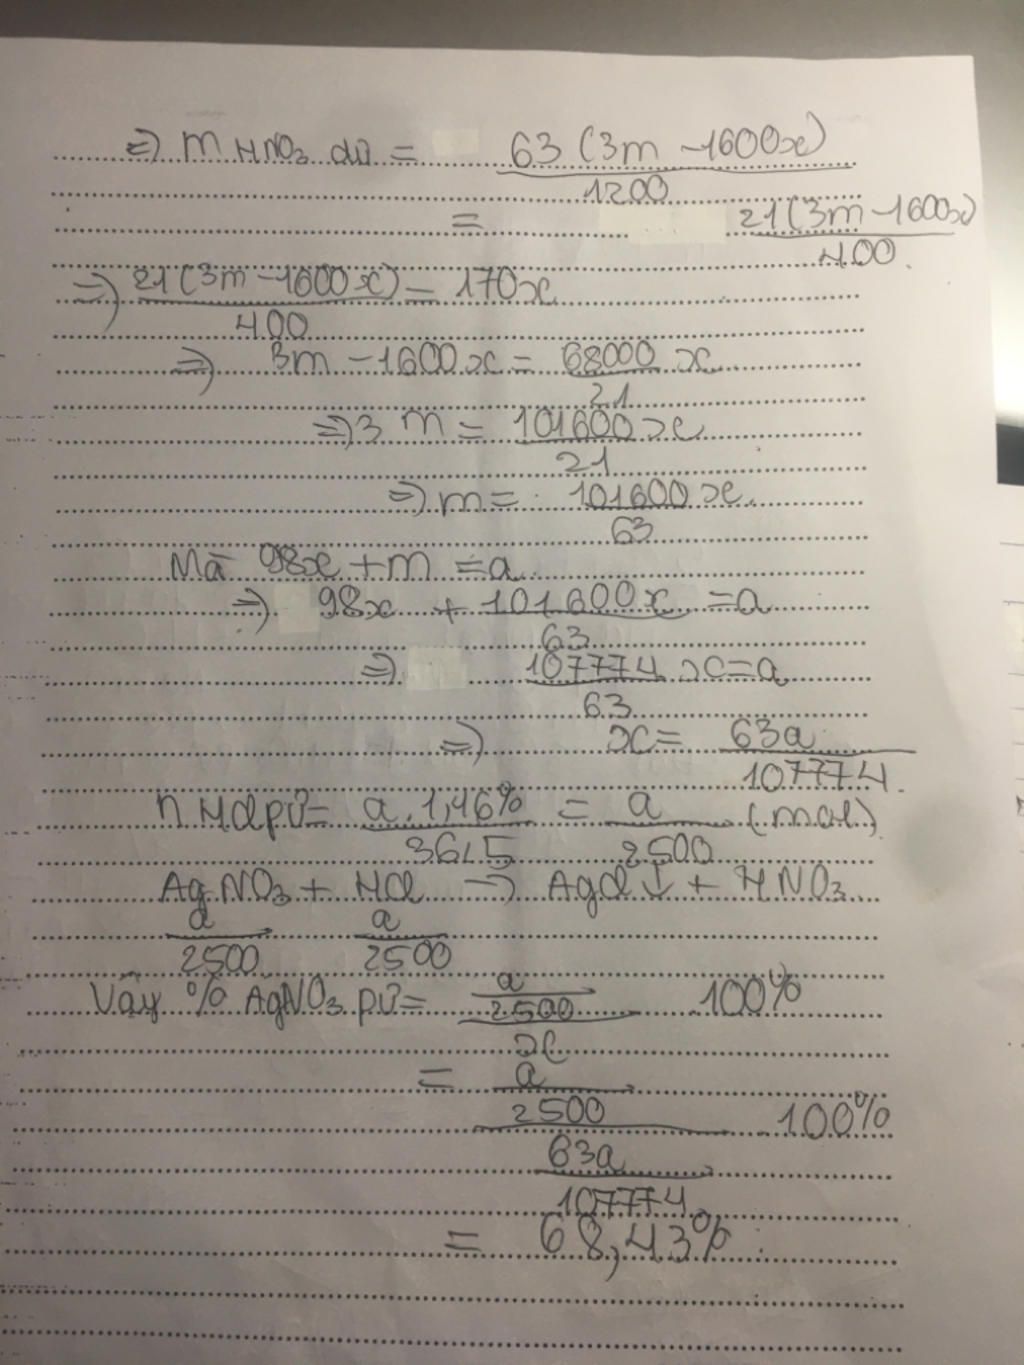 => m HNO3 dư = 63 (3m - 1600x) / 1200
= 21 (3m - 1600x) / 400.
=> 21 (3m - 1600x) / 400 = 170x
=> 3m - 1600x = 68000 / 21 x
=> 3m = 101600 / 21 x
=> m = 101600 x / 63
Mà 98x + m = a
=> 98x + 101600x / 63 = a
=> 107774 / 63 x = a
=> x = 63a / 107774.
n HCl pứ = a . 1,46% / 36,5 = a / 2500 (mol)
AgNO3 + HCl -> AgCl ↓ + HNO3
a / 2500 a / 2500
Vậy % AgNO3 pứ = a / 2500 / x . 100%
= a / 2500 / 63a / 107774 . 100%
= 68,43%